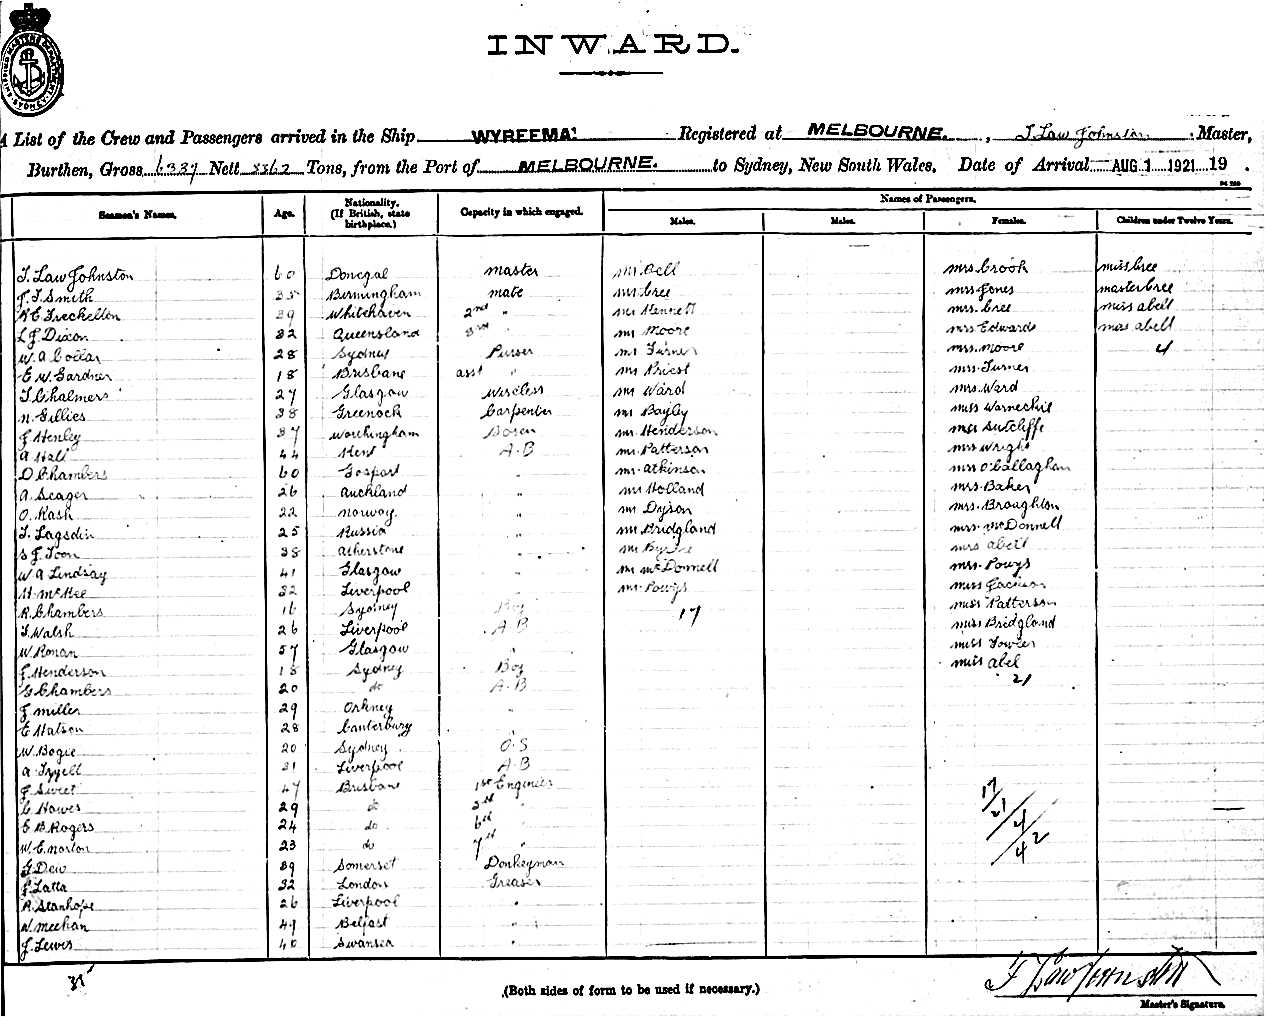 INWARD.
A List of the Crew and Passengers arrived in the Ship WYREEMA. Registered at MELBOURNE. , J. Law Johnston . Master,
Burthen, Gross 6339 Nett Tons, from the Port of MELBOURNE. to Sydney, New South Wales. Date of Arrival AUG 1 1921 19 .
Names of Passengers.
Seamen's Names. Age. Nationality. (If British, state birthplace.) Capacity in which engaged. Males. Males. Females. Children under Twelve Years.
J. Law Johnston 60 Donegal master mr Bell mrs Crook miss Cree
J. J. Smith 35 Birmingham mate mr Cree mrs Jones master Cree
39 Whitehaven 2nd " mr Kennett mrs. Cree miss abell
L J. Dixon 32 Queensland 3rd " mr Moore mrs Edwards miss abell
W. A. Collar 28 Sydney Purser mr Turner mrs. Moore 4
E. W. Gardner 18 Brisbane asst " mr Priest mrs. Turner
J. Chalmers 27 Glasgow Wireless mr Ward mrs. Ward
N. Gillies 38 Greenock Carpenter mr Bayley miss
J. Henley 37 Bosun mr Henderson Sutcliffe
A Hall 44 Kent A.B mr. Patterson mrs Wright
D Chambers 60 Gosport " mr. Atkinson mrs O'Callaghan
A. Seager 26 Auckland " mr Holland mrs. Baker
O. Rash 22 Norway. " mr Dyson mrs. Broughton
J. Lagsdin 25 Russia " mr Bridgland mrs. McDonnell
S J. Toon 38 Atherstone " mr mrs abell
W A Lindsay 41 Glasgow " mr McDonnell mrs. Powys
H. McKee 32 Liverpool " mr. Powys miss
R. Chambers 16 Sydney Boy 17 miss Patterson
J. Walsh 26 Liverpool A B miss Bridgland
W. Ronan 57 Glasgow " miss Fowler
J. Henderson 18 Sydney Boy miss abel
G. Chambers 20 do A.B 21
J. Miller 29 Orkney "
E Watson 28 Canterbury "
W. Bogie 20 Sydney O.S
A. Tyrell 31 Liverpool A B
J. Sweet 47 Brisbane 1st Engineer
C. Howes 29 do 3rd "
E B. Rogers 24 do 6th "
W. E. Norton 23 do 7th "
G. Dew 39 Somerset Donkeyman
J. Latta 32 London Greaser
R. Stanhope 26 Liverpool "
W. Meehan 49 Belfast "
J. Lewis 40 Swansea "
17
21
4
42
35
(Both sides of form to be used if necessary.)
J Law Johnston
Master's Signature.